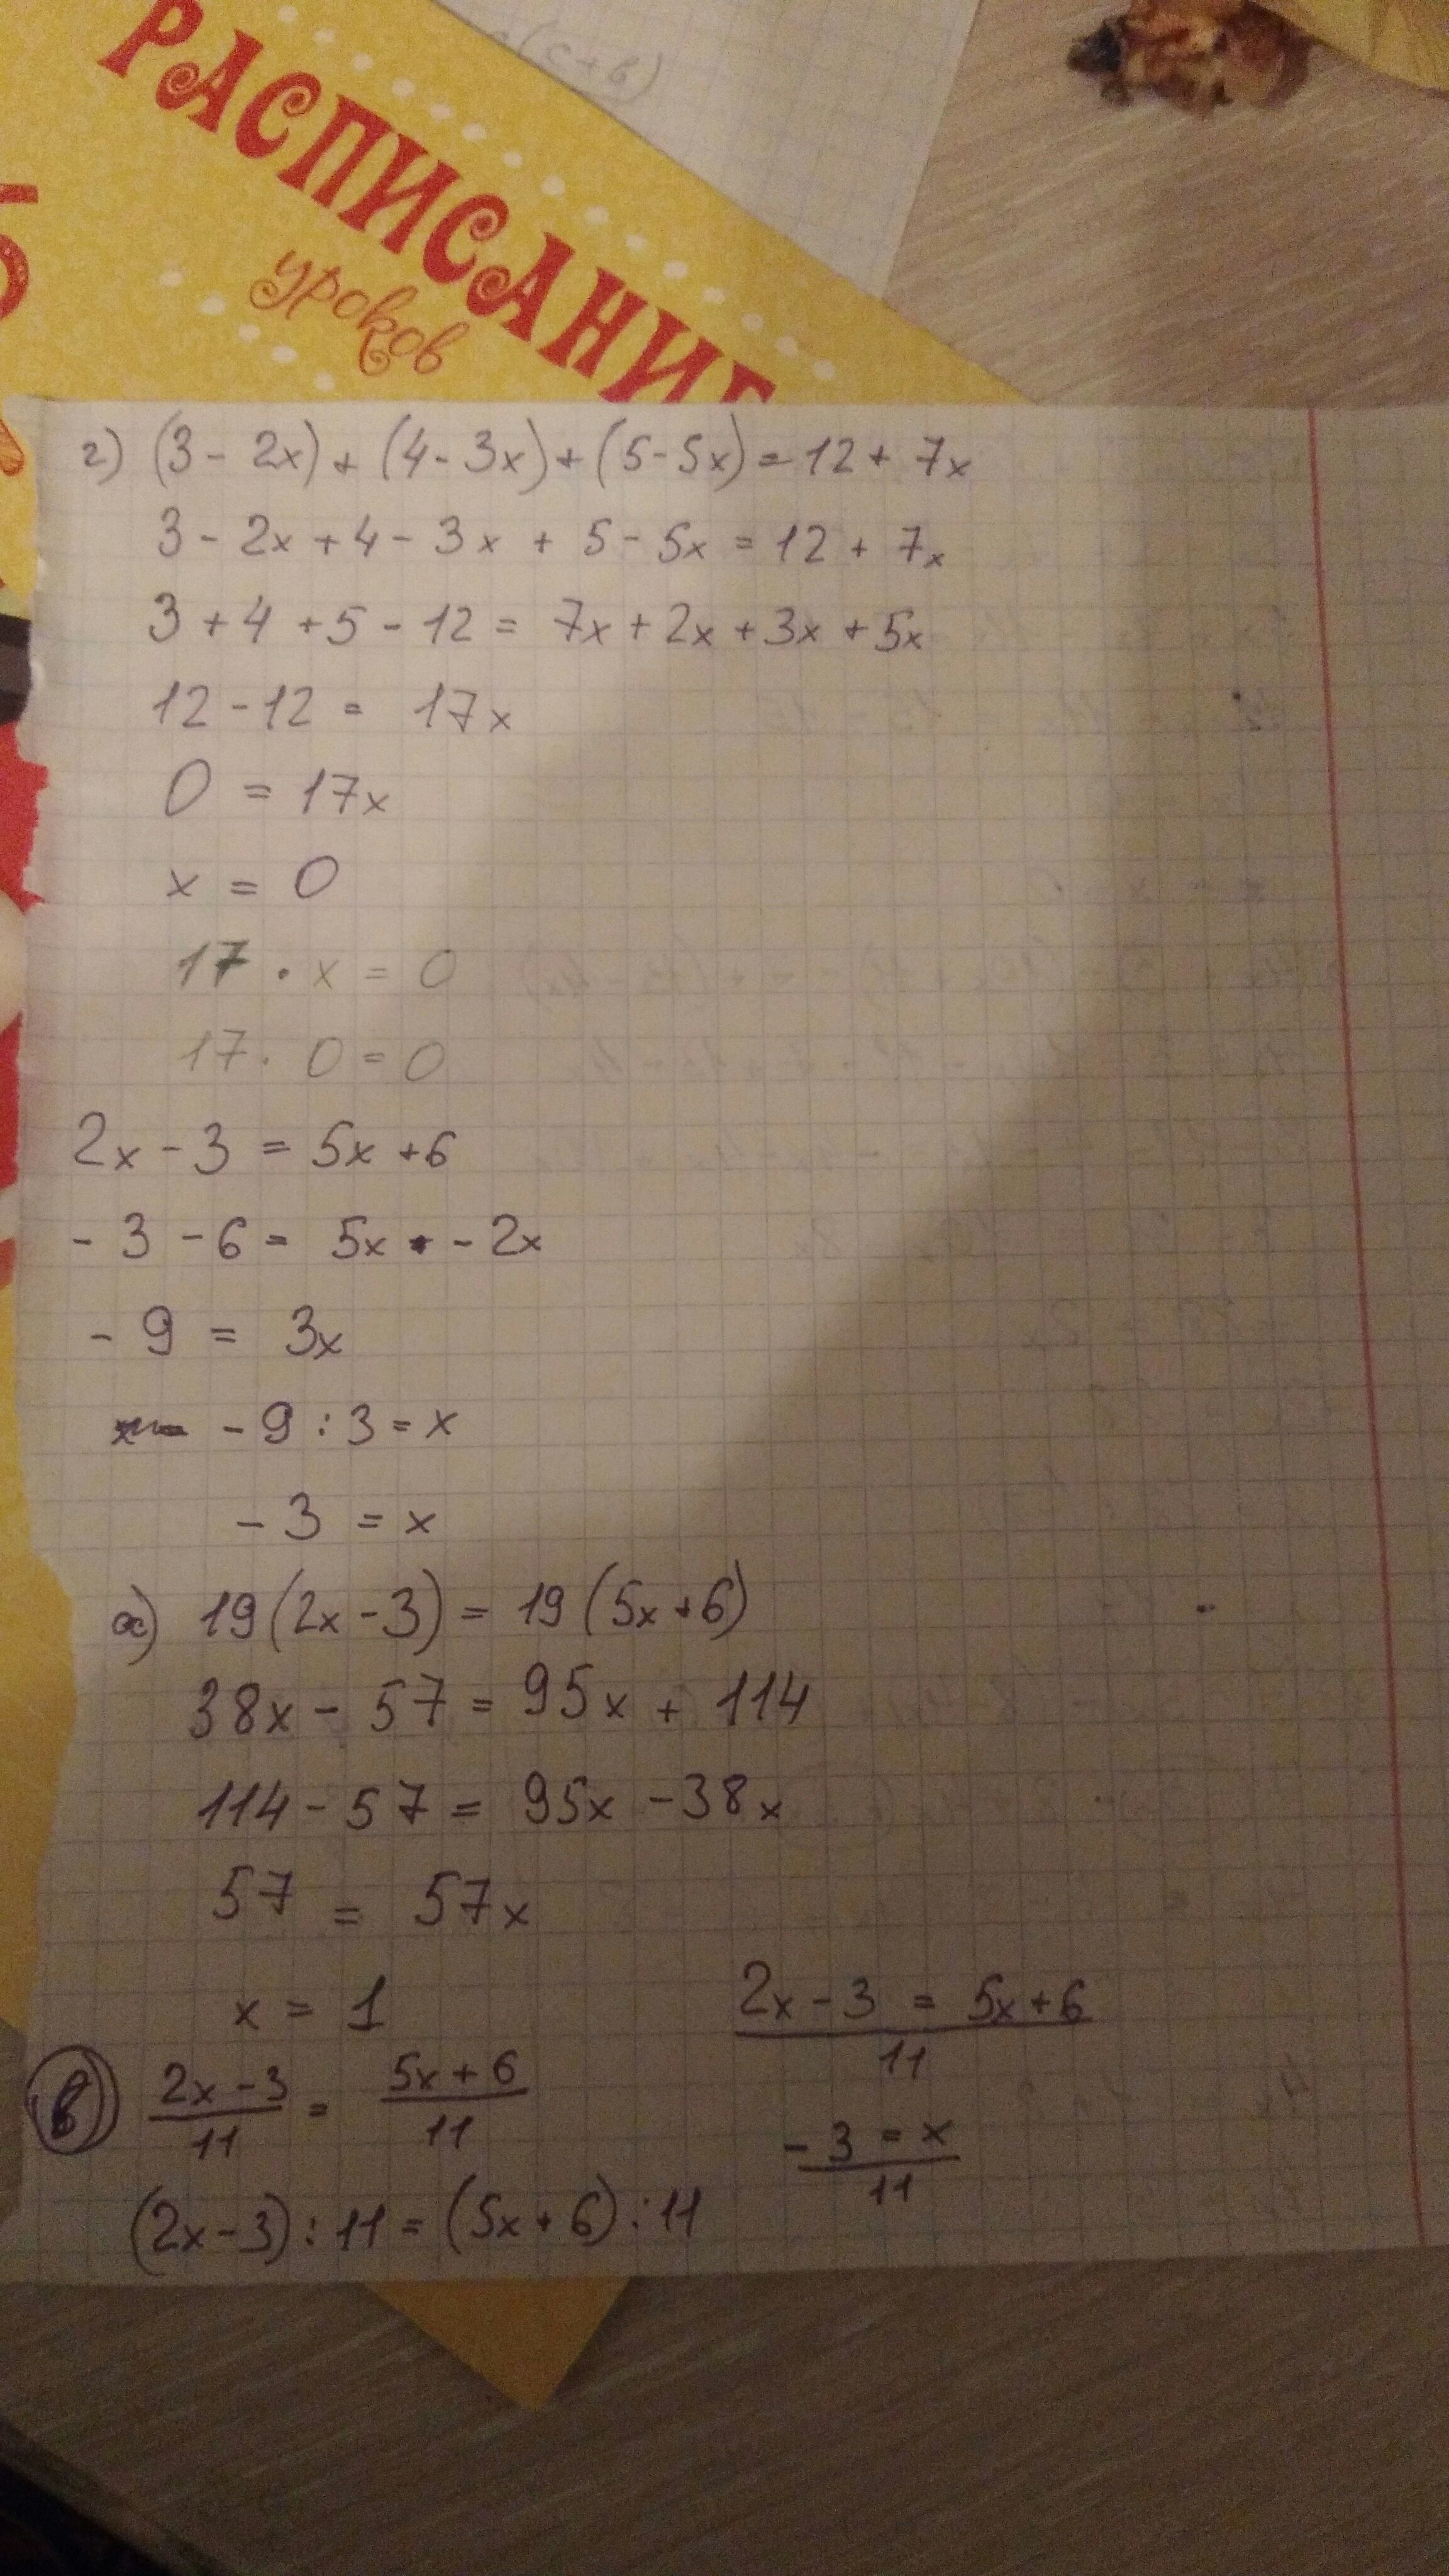 (c+в)
РАСПИСАНИЕ
уроков
г) (3 - 2x) + (4 - 3x) + (5 - 5x) = 12 + 7x
3 - 2x + 4 - 3x + 5 - 5x = 12 + 7x
3 + 4 + 5 - 12 = 7x + 2x + 3x + 5x
12 - 12 = 17x
0 = 17x
x = 0
17 · x = 0
17 · 0 = 0
2x - 3 = 5x + 6
- 3 - 6 = 5x - 2x
- 9 = 3x
- 9 : 3 = x
- 3 = x
а) 19 (2x - 3) = 19 (5x + 6)
38x - 57 = 95x + 114
114 - 57 = 95x - 38x
57 = 57x
x = 1
в) (2x - 3)/11 = (5x + 6)/11
(2x - 3) : 11 = (5x + 6) : 11
2x - 3 = 5x + 6
11
- 3 = x
11